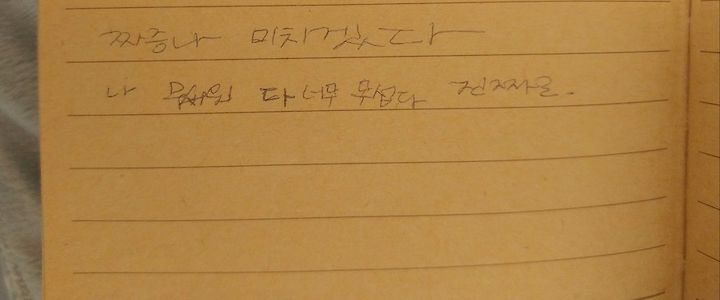 짜증나 미치겟다
나 다 너무 무섭다 진짜로.